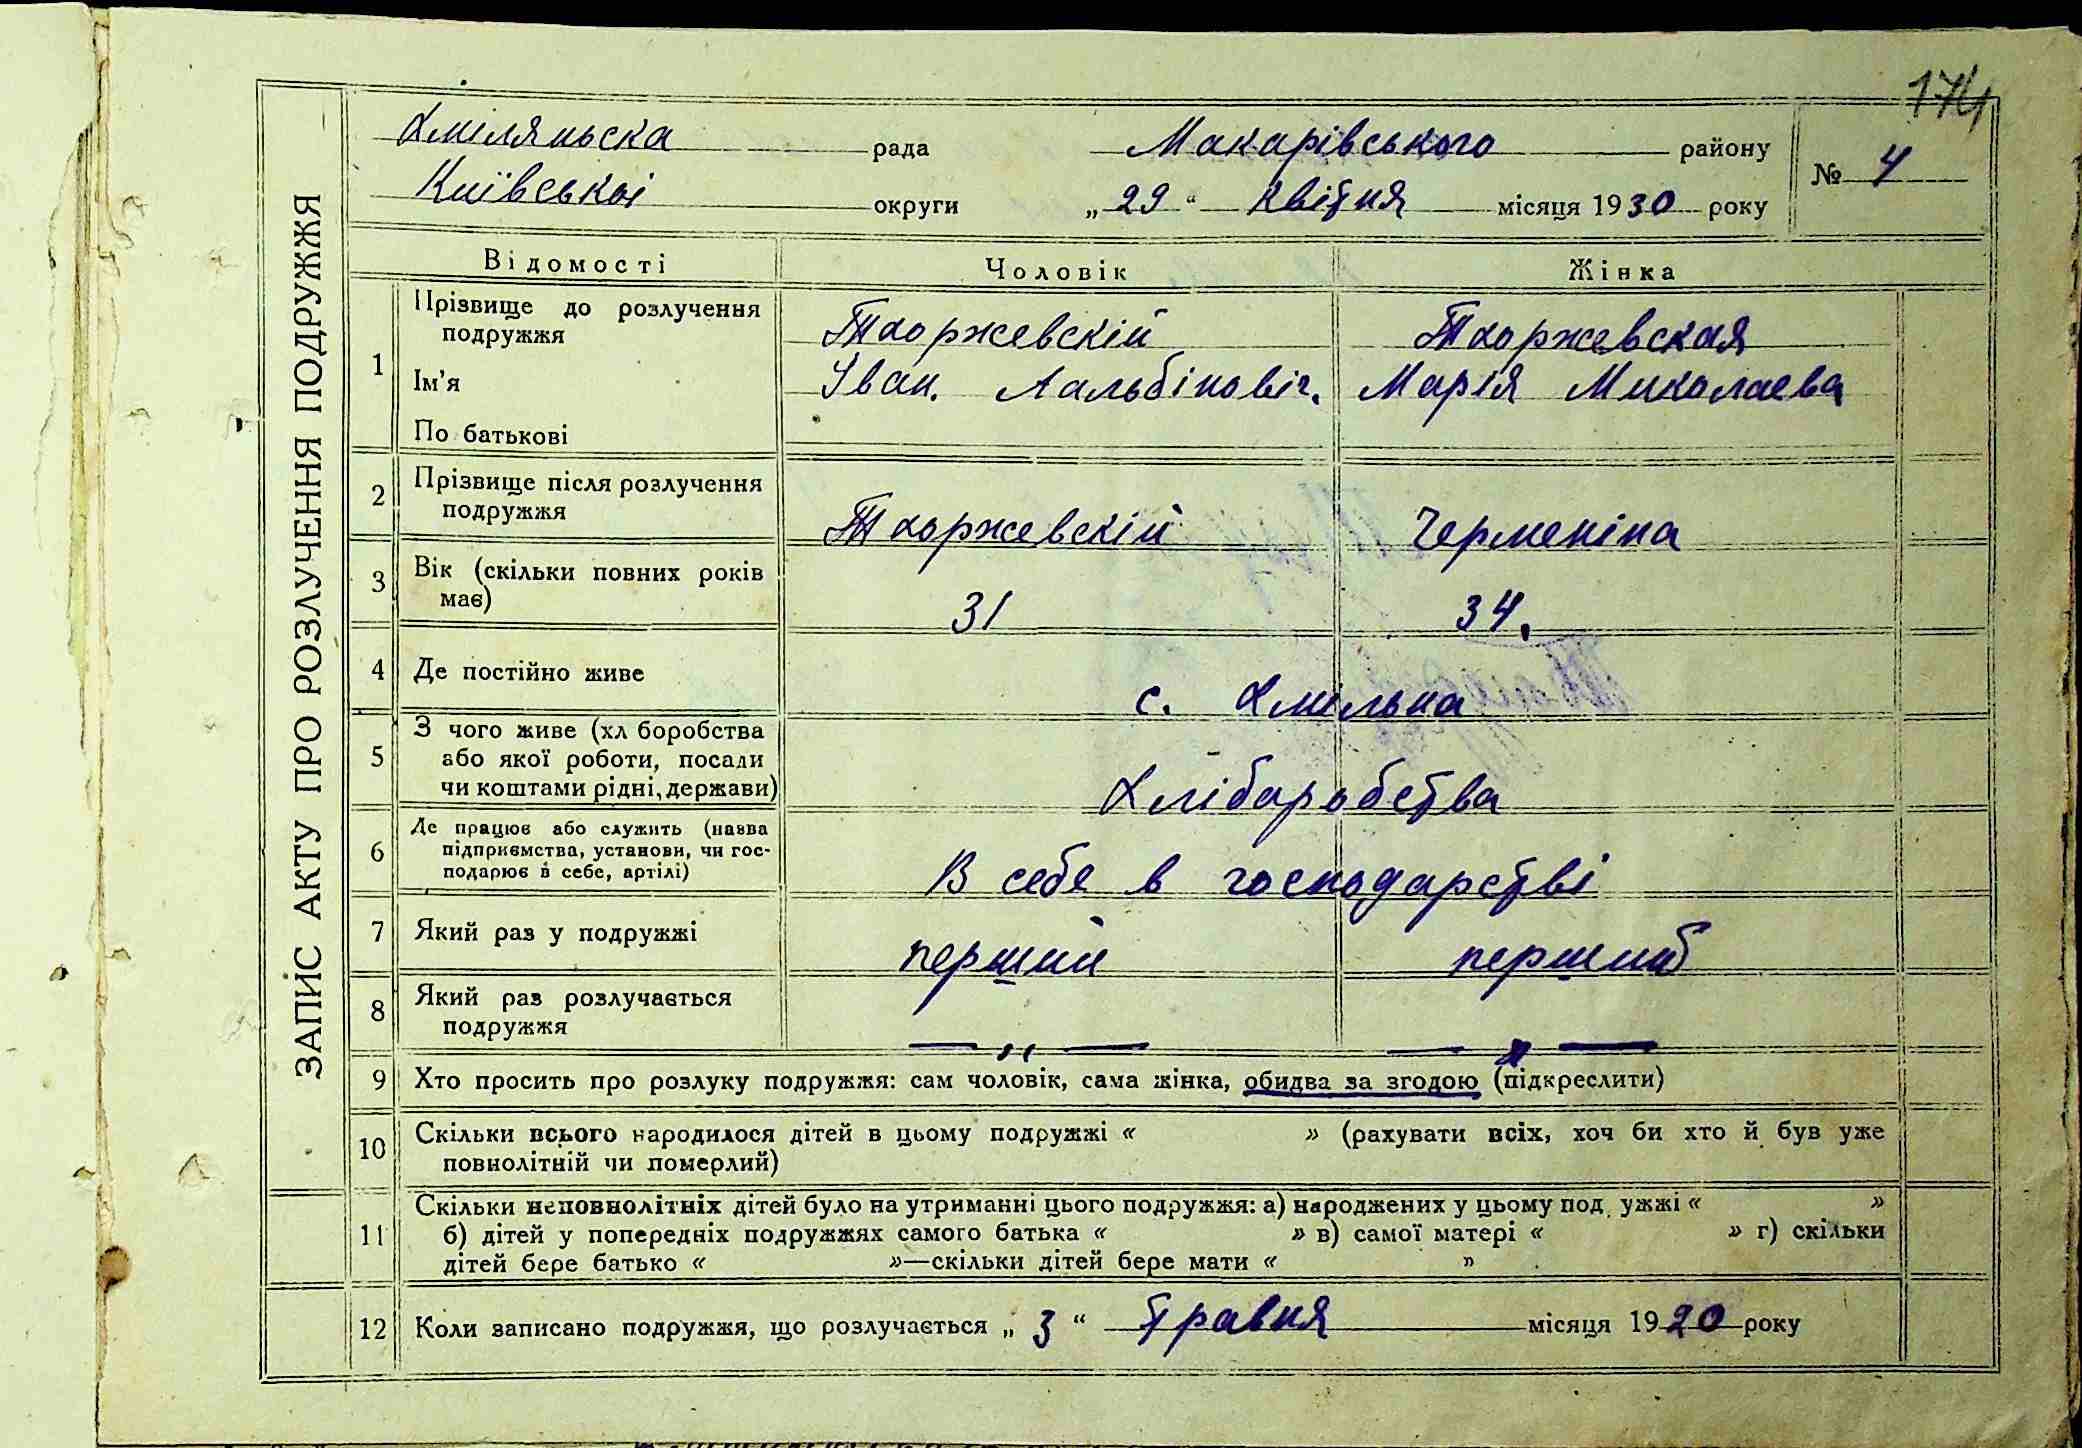 174
ЗАПИС АКТУ ПРО РОЗЛУЧЕННЯ ПОДРУЖЖЯ
Хміляньска рада Макарівського району
Київської округи „29“ квітня місяця 1930 року № 4
Відомості Чоловік Жінка
1 Прізвище до розлучення подружжя Тхоржевскій Тхоржевская
Ім'я Іван. Аальбіновіч. Марія Миколаева
По батькові
2 Прізвище після розлучення
подружжя Тхоржевскій Черменіна
3 Вік (скільки повних років
має) 31 34.
4 Де постійно живе с. Хмільна
5 З чого живе (хл боробства
або якої роботи, посади
чи коштами рідні, держави) Хлібаробства
6 Де працює або служить (назва
підприємства, установи, чи гос-
подарює в себе, артілі) В себе в господарстві
7 Який раз у подружжі першии першиб
8 Який раз розлучається
подружжя — „ — — „ —
9 Хто просить про розлуку подружжя: сам чоловік, сама жінка, обидва за згодою (підкреслити)
10 Скільки всього народилося дітей в цьому подружжі « » (рахувати всіх, хоч би хто й був уже
повнолітній чи померлий)
11 Скільки неповнолітніх дітей було на утриманні цього подружжя: а) народжених у цьому под ужжі « »
б) дітей у попередніх подружжях самого батька « » в) самої матері « » г) скільки
дітей бере батько « »—скільки дітей бере мати « »
12 Коли записано подружжя, що розлучається „ 3 “ травня місяця 1920 року